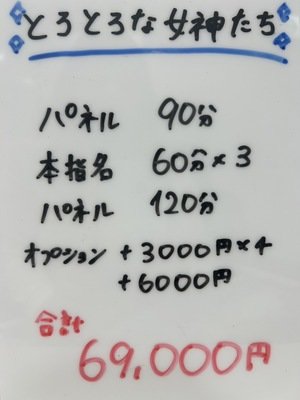 とろとろな女神たち
パネル 90分
本指名 60分×3
パネル 120分
オプション +3000円×4
+6000円
合計
69,000円